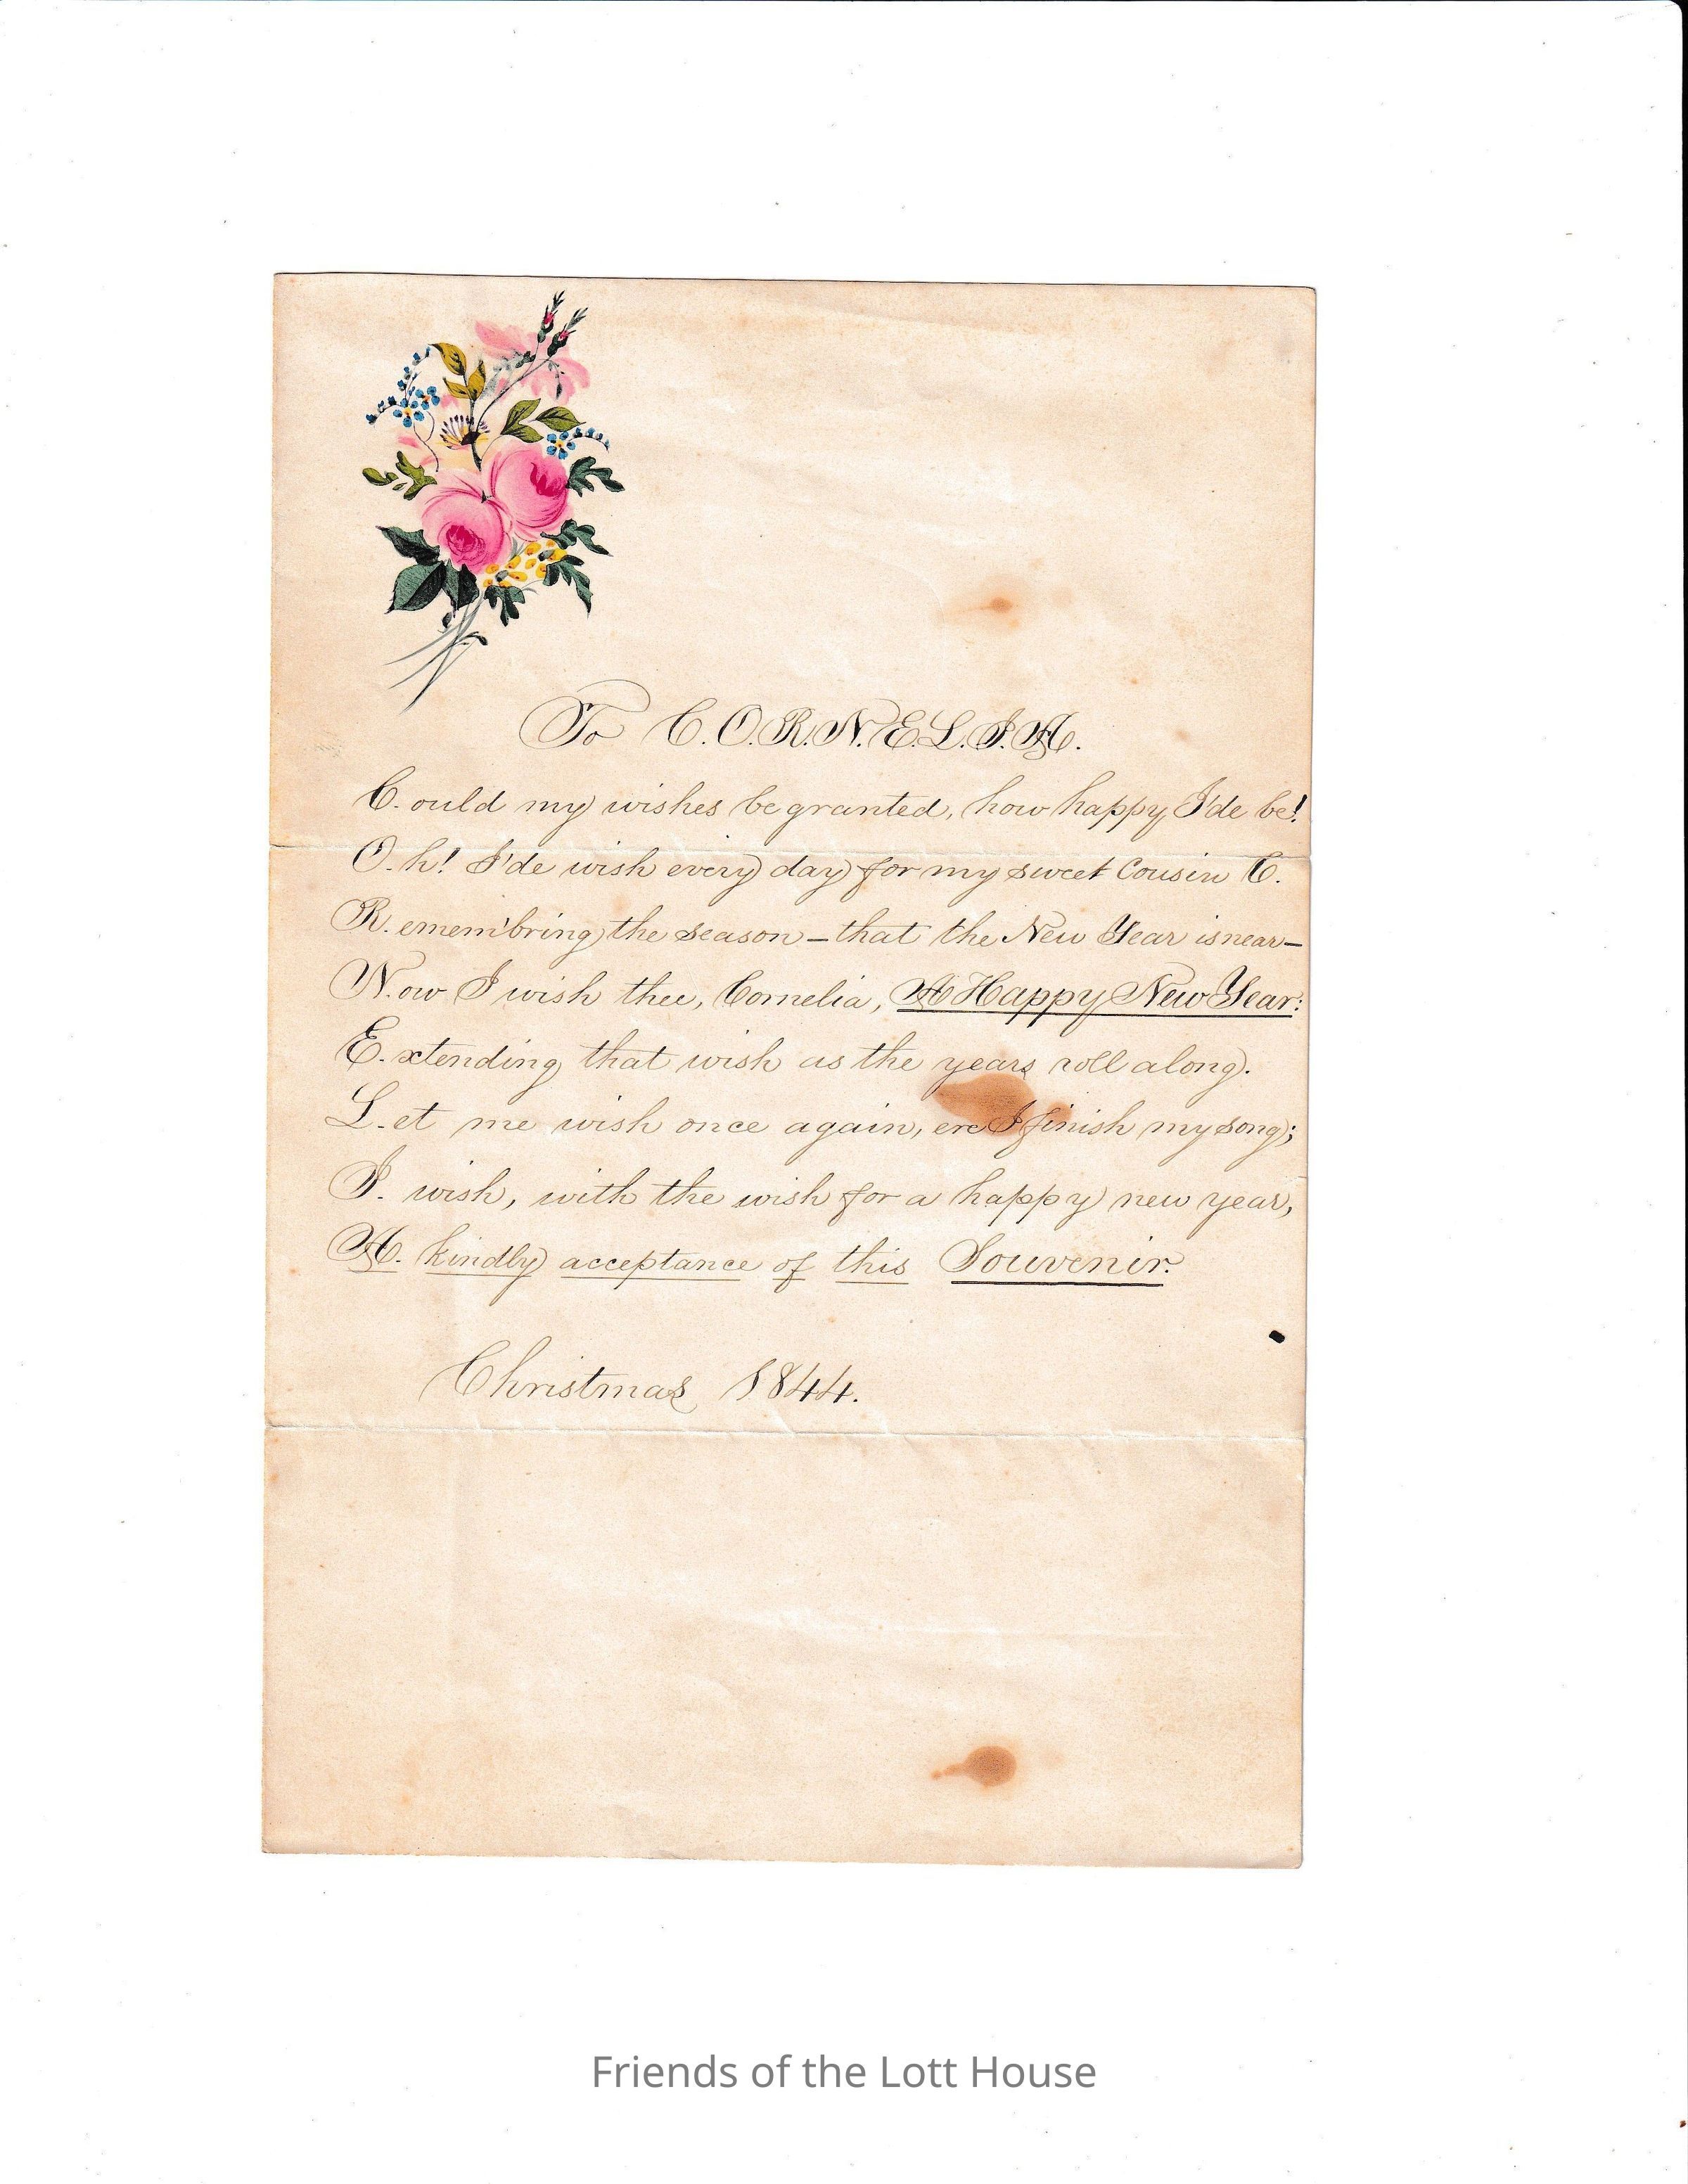 To C.O.R.N.E.L.I.A.
C.ould my wishes be granted, how happy I'de be!
O.h! I'de wish every day for my sweet Cousin C.
R.emem'bring the season – that the New Year is near –
N.ow I wish thee, Cornelia, A Happy New Year:
E.xtending that wish as the years roll along.
L.et me wish once again, ere I finish my song;
I. wish, with the wish for a happy new year,
A. kindly acceptance of this Souvenir.
Christmas 1844.
Friends of the Lott House